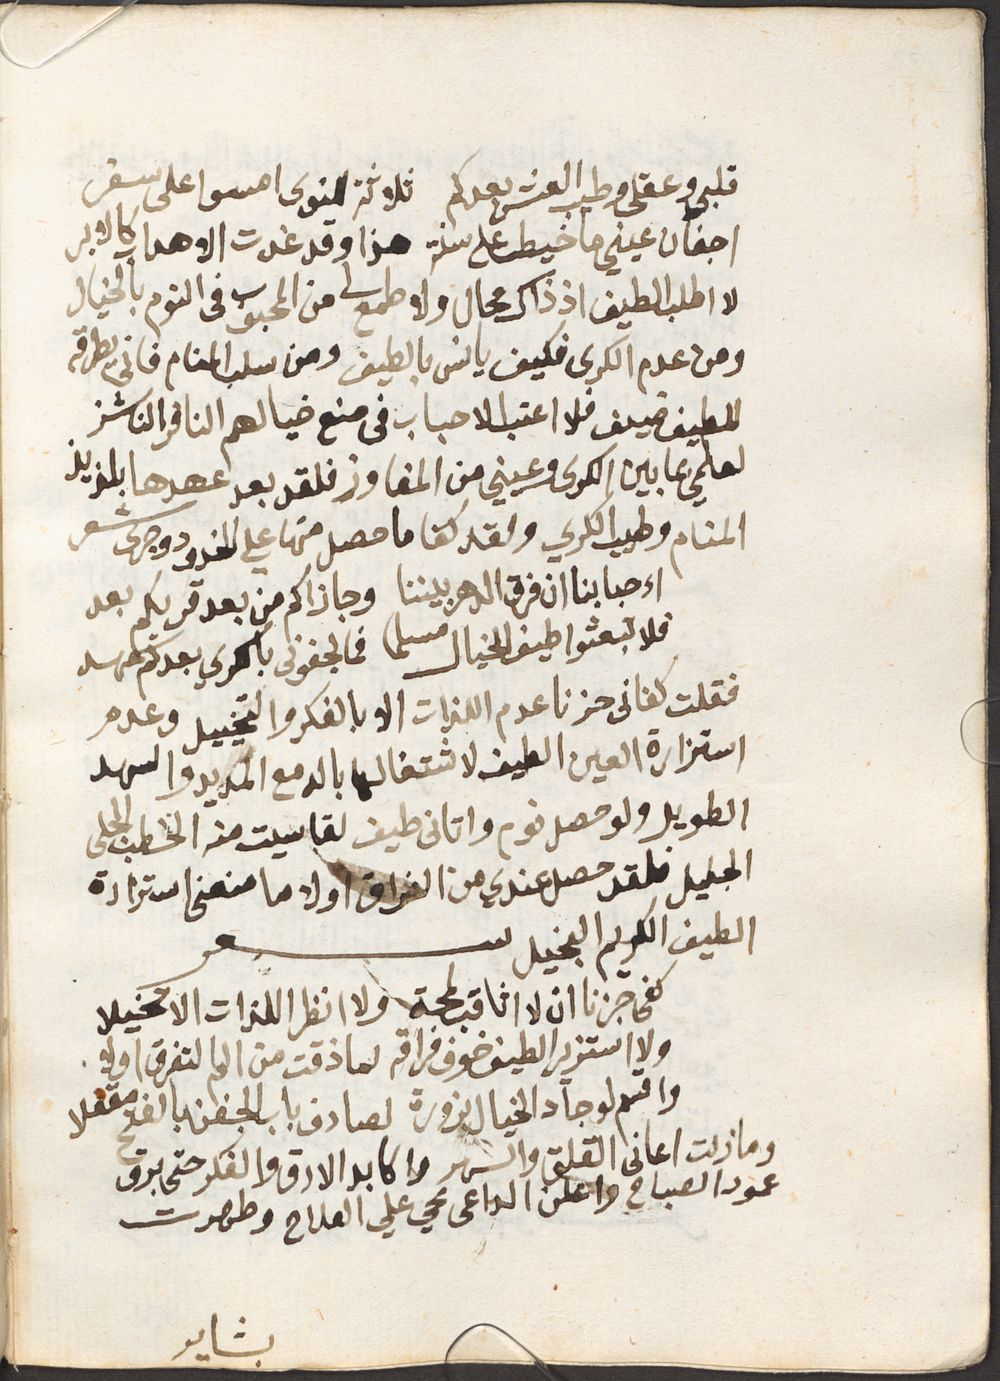 قلبي وعقلي وطيب العيش بعدكم ثلاثة للنوى امسوا على سفر
اجفان عيني ما خيطت على سنة هذا وقد غدت الاهداب كالابر
لا اطلب الطيف اذ ذاك محال ولا طمع لي من المحبوب في النوم بالخيال
ومن عدم الكرى فكيف يانس بالطيف ومن سلب المنام فانى يطرقه
للطيف ضيف فلا اعتب الاحباب في منع خيالهم النافر الناشز
لعلمي بما بين الكرى وعيني من المفاوز فلقد بعد عهدها بلذيذ
المنام وطيب الكري ولقد كفا ما حصل منها علي الخدود وجرى شعر
اءحبابنا ان فرق الدهر بيننا وجازاكم من بعد قربكم بعد
فلا تبعثوا طيف الخيال مسلما فما لجفوني بالكري بعدكم عهد
فقلت كفاني حزنا عدم اللذات الا بالفكر والتخييل وعدم
استزارة العين الطيف لاشتغالها بالدمع المديد والسهد
الطويل ولو حصل نوم واتاني طيف لقاسيت منه الخطب الجلي
الجليل فلقد حصل عندي من الفراق اولا ما منعني استزارة
الطيف الكريم البخيل شعر
كفى حزنا ان لا اثاقب لمحة ولا انظر اللذات الا تخيلا
ولا استزير الطيف خوف فراقه لما ذقت من الم التفرق اولا
واقسم لو جاد الخيال بزورة لصادف باب الجفن بالفتح مقفلا
وما زلت اعاني القلق والسهر واكابد الارق والفكر حتى برق
عمود الصباح واعلن الداعي بحي علي الفلاح وظهرت
بشاير